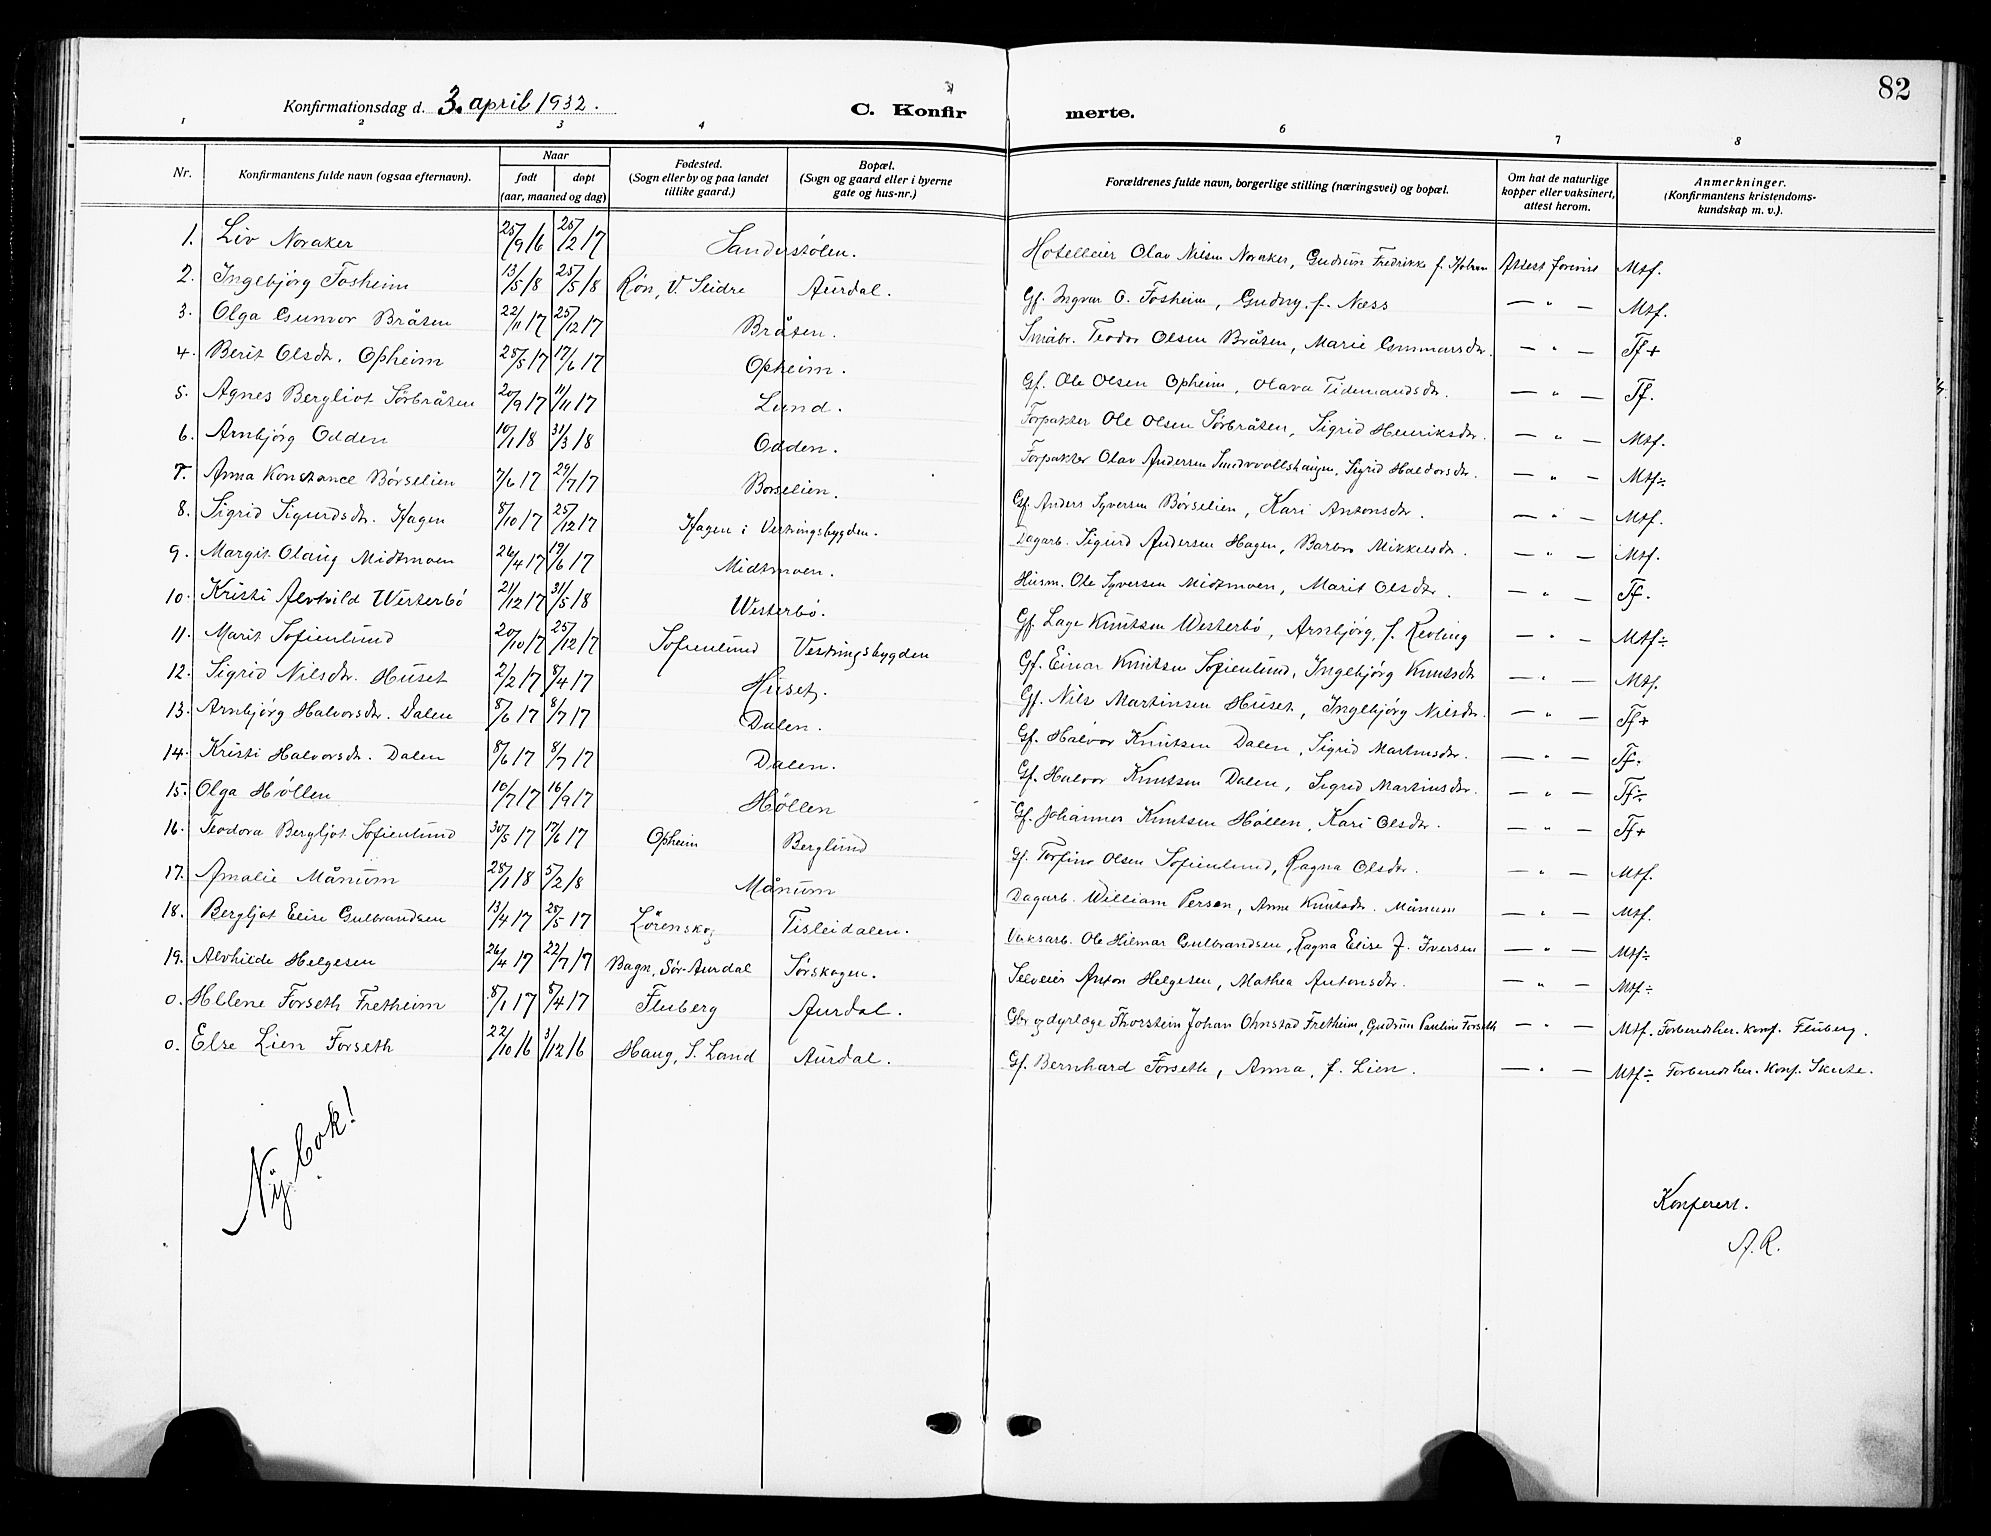 82
Konfirmationsdag d. 3. april 1932.
C. Konfirmerte.
1 2 3 4 6 7 8
Nr. Konfirmantens fulde navn (ogsaa efternavn). Naar født døpt (aar, maaned og dag) Fødested. (Sogn eller by og paa landet tillike gaard.) Bopæl. (Sogn og gaard eller i byerne gate og hus-nr.) Forældrenes fulde navn, borgerlige stilling (næringsvei) og bopæl. Om hat de naturlige kopper eller vaksinert, attest herom. Anmerkninger. (Konfirmantens kristendoms-kundskap m. v.).
1. Liv Noraker 25/9 16 25/2 17 Sanderstølen. Hotelleier Olav Nilsen Noraker, Gudrun Fredrikke f. Attest forevist Mtf.
2. Ingebjørg Fosheim 13/5 18 25/5 18 Røn, V. Slidre Aurdal. Gf. Ingvar O. Fosheim, Gudny f. Næss — " — Mtf.
3. Olga Gunvor Bråten 22/11 17 25/12 17 Bråten. Småbr. Teodor Olsen Bråten, Marie Gunnarsdtr. — " — Tf+
4. Berit Olsdtr. Opheim 25/5 17 17/6 17 Opheim. Gf. Ole Olsen Opheim, Olava Tidemandsdtr. — " — Tf.
5. Agnes Bergliot Sørbråten 20/9 17 11/11 17 Lund. Forpakter Ole Olsen Sørbråten, Sigrid Henriksdtr. — " — Mtf.
6. Arnbjørg Odden 10/1 18 31/3 18 Odden. Forpakter Olav Andersen Sigrid Halvorsdtr. — " — Mtf÷
7. Anna Konstance Børselien 7/6 17 29/7 17 Børselien. Gf. Anders Syversen Børselien, Kari Antonsdtr. — " — Mtf.
8. Sigrid Sigurdsdtr. Hagen 8/10 17 25/12 17 Hagen i Vestringsbygden. Dagarb. Sigurd Andersen Hagen, Barbro Mikkelsdtr. — " — Mtf.
9. Margit Olaug Midtmoen 26/4 17 19/6 17 Midtmoen. Husm. Ole Syversen Midtmoen, Marit Olsdtr. — " — Tf.
10. Kristi Alvhild Westerbø 21/12 17 31/5 18 Westerbø. Gf. Lage Knutsen Westerbø, Arnbjørg, f. Revling — " — Mtf÷
11. Marit Sofienlund 20/10 17 25/12 17 Sofienlund Vestringsbygden Gf. Einar Knutsen Sofienlund, Ingebjørg Knutsdtr — " — Mtf.
12. Sigrid Nilsdtr. Huset 2/2 17 8/4 17 Huset. Gf. Nils Martinsen Huset, Ingebjørg Nilsdtr. — " — Tf+
13. Arnbjørg Halvorsdtr. Dalen 8/6 17 8/7 17 Dalen. Gf. Halvor Knutsen Dalen, Sigrid Martinsdtr. — " — Tf.
14. Kristi Halvorsdtr. Dalen 8/6 17 8/7 17 Dalen. Gf. Halvor Knutsen Dalen, Sigrid Martinsdtr. — " — Tf÷
15. Olga Høllen 10/7 17 16/9 17 Høllen Gf. Johannes Knutsen Høllen, Kari Olsdtr. — " — Tf+
16. Teodora Bergljot Sofienlund 30/5 17 17/6 17 Opheim Berglund Gf. Torfinn Olsen Sofienlund, Ragna Olsdtr. — " — Mtf.
17. Amalie Månum 25/1 18 5/2 18 Månum Dagarb. William Person, Anne Knutsdtr. Månum — " — Mtf.
18. Bergljot Elise Gulbrandsen 13/4 17 28/5 17 Lørenskog Tisleidalen. Ole Hilmar Gulbrandsen, Ragna Elise f. Iversen — " — Mtf÷
19. Alvhilde Helgesen 26/4 17 22/7 17 Bagn, Sør-Aurdal Sørskogen. Selveier Anton Helgesen, Mathea Antonsdtr. — " — Mtf÷
0. Helene Forseth Fretheim 8/1 17 8/4 17 Fluberg Aurdal. Gbr. og dyrlæge Thorstein Johan Ohnstad Fretheim, Gudrun Pauline Forseth — " — Mtf. Forberedt her. Konf. Fluberg.
0. Else Lien Forseth 22/10 16 3/12 16 Haug, S. Land Aurdal. Gf. Bernhard Forseth, Anna, f. Lien. — " — Mtf÷ Forberedt her. Konf. Skute.
Ny bok!
Konferert.
A. R.